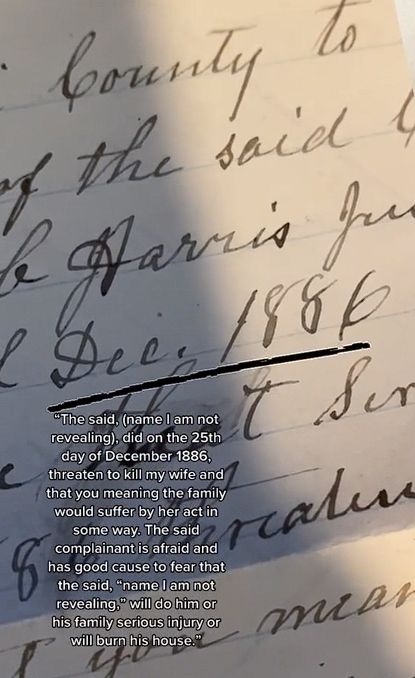 County to
of the said
Harris
Dec. 1886
“The said, (name I am not
revealing), did on the 25th
day of December 1886,
threaten to kill my wife and
that you meaning the family
would suffer by her act in
some way. The said
complainant is afraid and
has good cause to fear that
the said, “name I am not
revealing,” will do him or
his family serious injury or
will burn his house.”
you mean